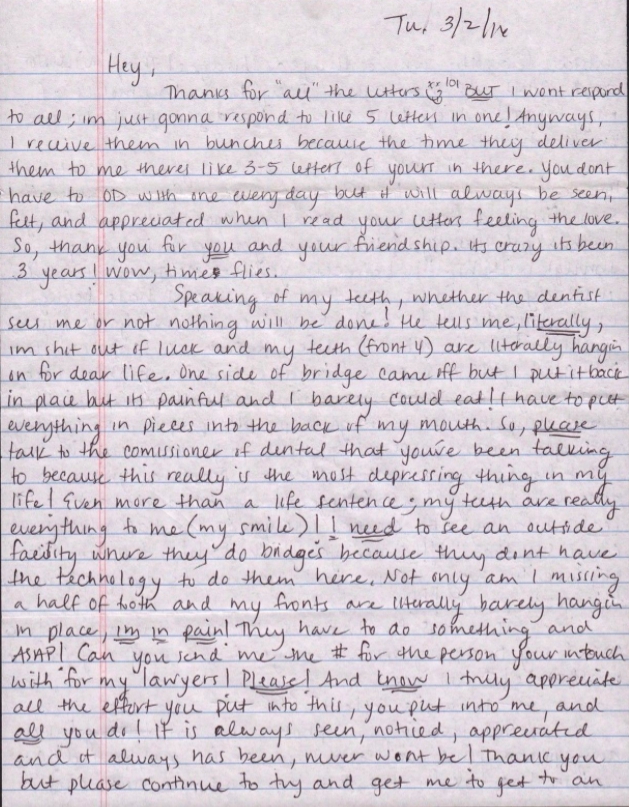 Tu. 3/2/1x
Hey,
Thanks for "all" the letters lol BUT I wont respond
to all; im just gonna respond to like 5 letters in one! Anyways,
I receive them in bunches because the time they deliver
them to me theres like 3-5 letters of yours in there. You dont
have to OD with one everyday but it will always be seen,
felt, and appreciated when I read your letters feeling the love.
So, thank you for you and your friendship. Its crazy its been
3 years! Wow, time flies.
Speaking of my teeth, whether the dentist
sees me or not nothing will be done! He tells me, literally,
im shit out of luck and my teeth (front 4) are literally hangin
on for dear life. One side of bridge came off but I put it back
in place but its painful and I barely could eat! I have to put
everything in pieces into the back of my mouth. So, please
talk to the comissioner of dental that youve been talking
to because this really is the most depressing thing in my
life! Even more than a life sentence; my teeth are really
everything to me (my smile)! I need to see an outside
facility where they do bridges because they dont have
the technology to do them here. Not only am I missing
a half of tooth and my fronts are literally barely hangin
in place, im in pain! They have to do something and
ASAP! Can you send me the # for the person your intouch
with for my lawyers! Please! And know I truly appreciate
all the effort you put into this, you put into me, and
all you do! It is always seen, noticed, appreciated
and it always has been, never wont be! Thank you
but please continue to try and get me to get to an